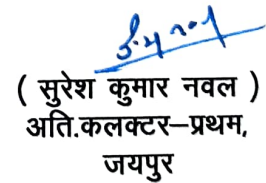 ( सुरेश कुमार नवल )
अति.कलक्टर–प्रथम,
जयपुर